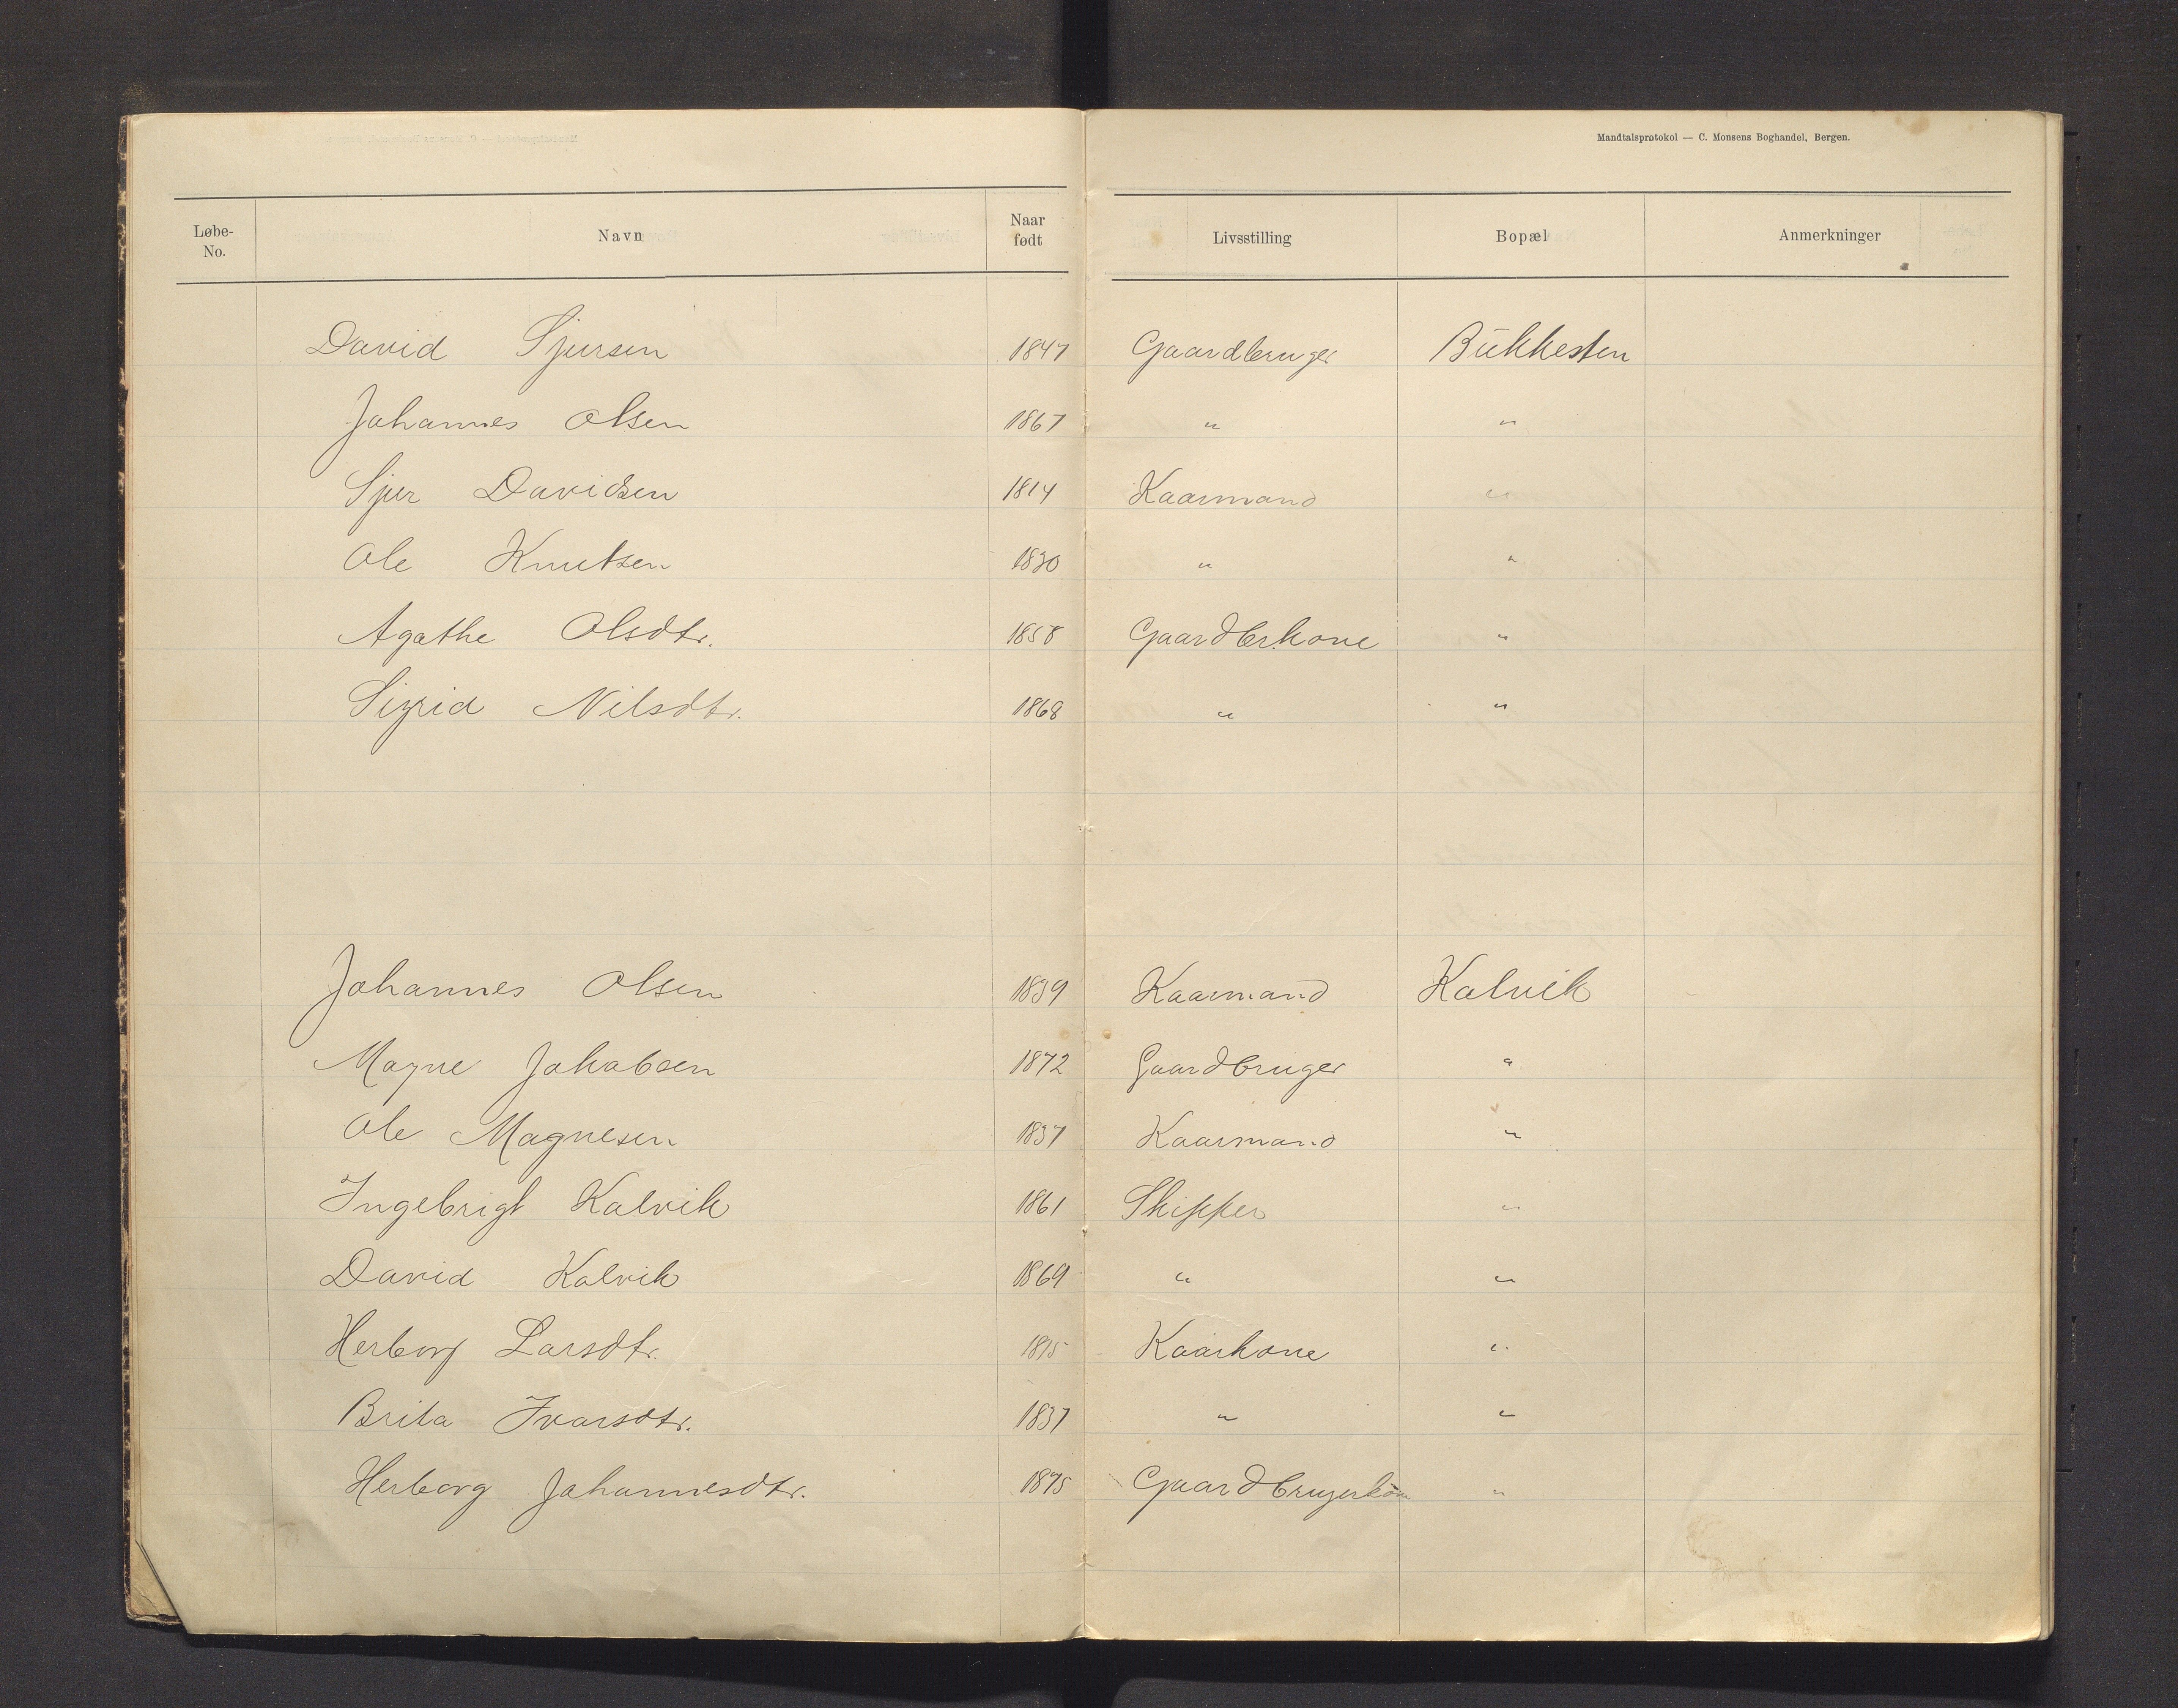 Mandtalsprotokol — C. Monsens Boghandel, Bergen.
Løbe-No. Navn Naar født Livsstilling Bopæl Anmerkninger
David Sjursen 1847 Gaardbruger Bukkesten
Johannes Olsen 1867 " "
Sjur Davidsen 1814 Kaarmand "
Ole Knutsen 1830 " "
Agathe Olsdtr. 1858 Gaardbr.kone "
Sigrid Nilsdtr. 1868 " "
Johannes Olsen 1839 Kaarmand Kalvik
Magne Jakobsen 1872 Gaardbruger "
Ole Magnesen 1837 Kaarmand "
Ingebrigt Kalvik 1861 Skipper "
David Kalvik 1869 " "
Herborg Larsdtr. Kaarkone "
Brita Ivarsdtr. 1837 " "
Herborg Johannesdtr. 1875 Gaardbrugerkone "